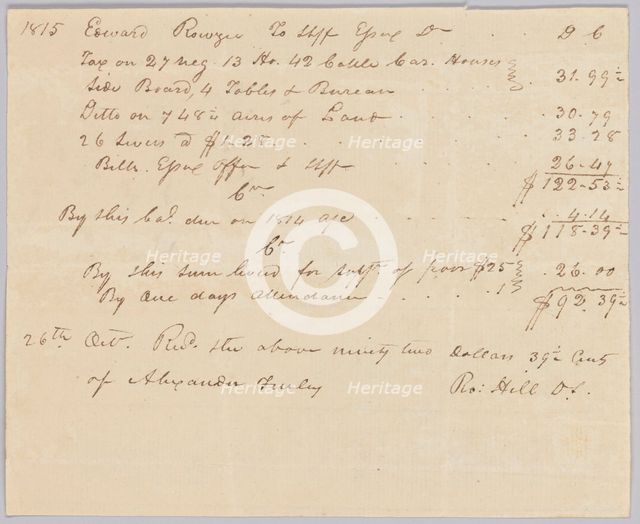 1815 Edward Rowzee To Shff Essex Dr D C
Tax on 27 neg. 13 Ho. 42 Cattle Car. Houses
Side Board, 4 Tables & Bureau 31.99½
Ditto on 748½ acres of Land 30.79
26 @ $1.28 33.28
Bills. Essex Offer & Shff 26.47
$122.53½
Cr
By this bal. due on 1814 a/c 4.14
$118.39½
Cr
By this sum levied for suppt. of poor $25
By one days attendance 1 26.00
$92.39½
26th Octr. Recd. the above ninety two dollars 39½ Cents
of Alexander Ro: Hill D.S.
Heritage
Heritage
Heritage
Heritage
Heritage
Heritage
Heritage
C